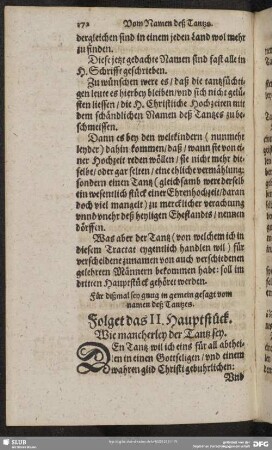 172 Vom Namen deß Tantzs.
dergleichen sind in einem jeden Land wol mehr
zu finden.
Diese jetzt gedachte Namen sind fast alle in
H. Schrifft geschrieben.
Zu wünschen were es / daß die tantzsüchti-
gen leute es hierbey bleiben / vnd sich nicht gelü-
sten liessen / die H. Christliche Hochzeiten mit
dem schändlichen Namen deß Tantzes zu be-
schmeissen.
Dann es bey den weltkindern (nunmehr
leyder) dahin kommen / daß / wann sie von ei-
ner Hochzeit reden wöllen / sie nicht mehr die-
selbe / oder gar selten / eine ehliche vermählung:
sondern einen Tantz (gleichsamb were derselb
ein wesentlich stück einer Ehrenhochzeit / daran
doch viel mangelt) zu mercklicher verachtung
vnnd vnehr deß heyligen Ehestandes / nennen
dörffen.
Was aber der Tantz (von welchem ich in
diesem Tractat eygentlich handlen will) für
verscheidene zunamen von auch verschiedenen
gelehrten Männern bekommen habe: soll im
dritten Hauptstück gehöret werden.
Für dißmal sey gnug in gemein gesagt vom
namen deß Tantzes.
Folget das II. Hauptstück.
Wie mancherley der Tantz sey.
DEn Tantz wil ich eins für all abthei-
len in einen Gottseligen / vnd einem
wahren glid Christi gebührlichen:
Vnd
SLUB